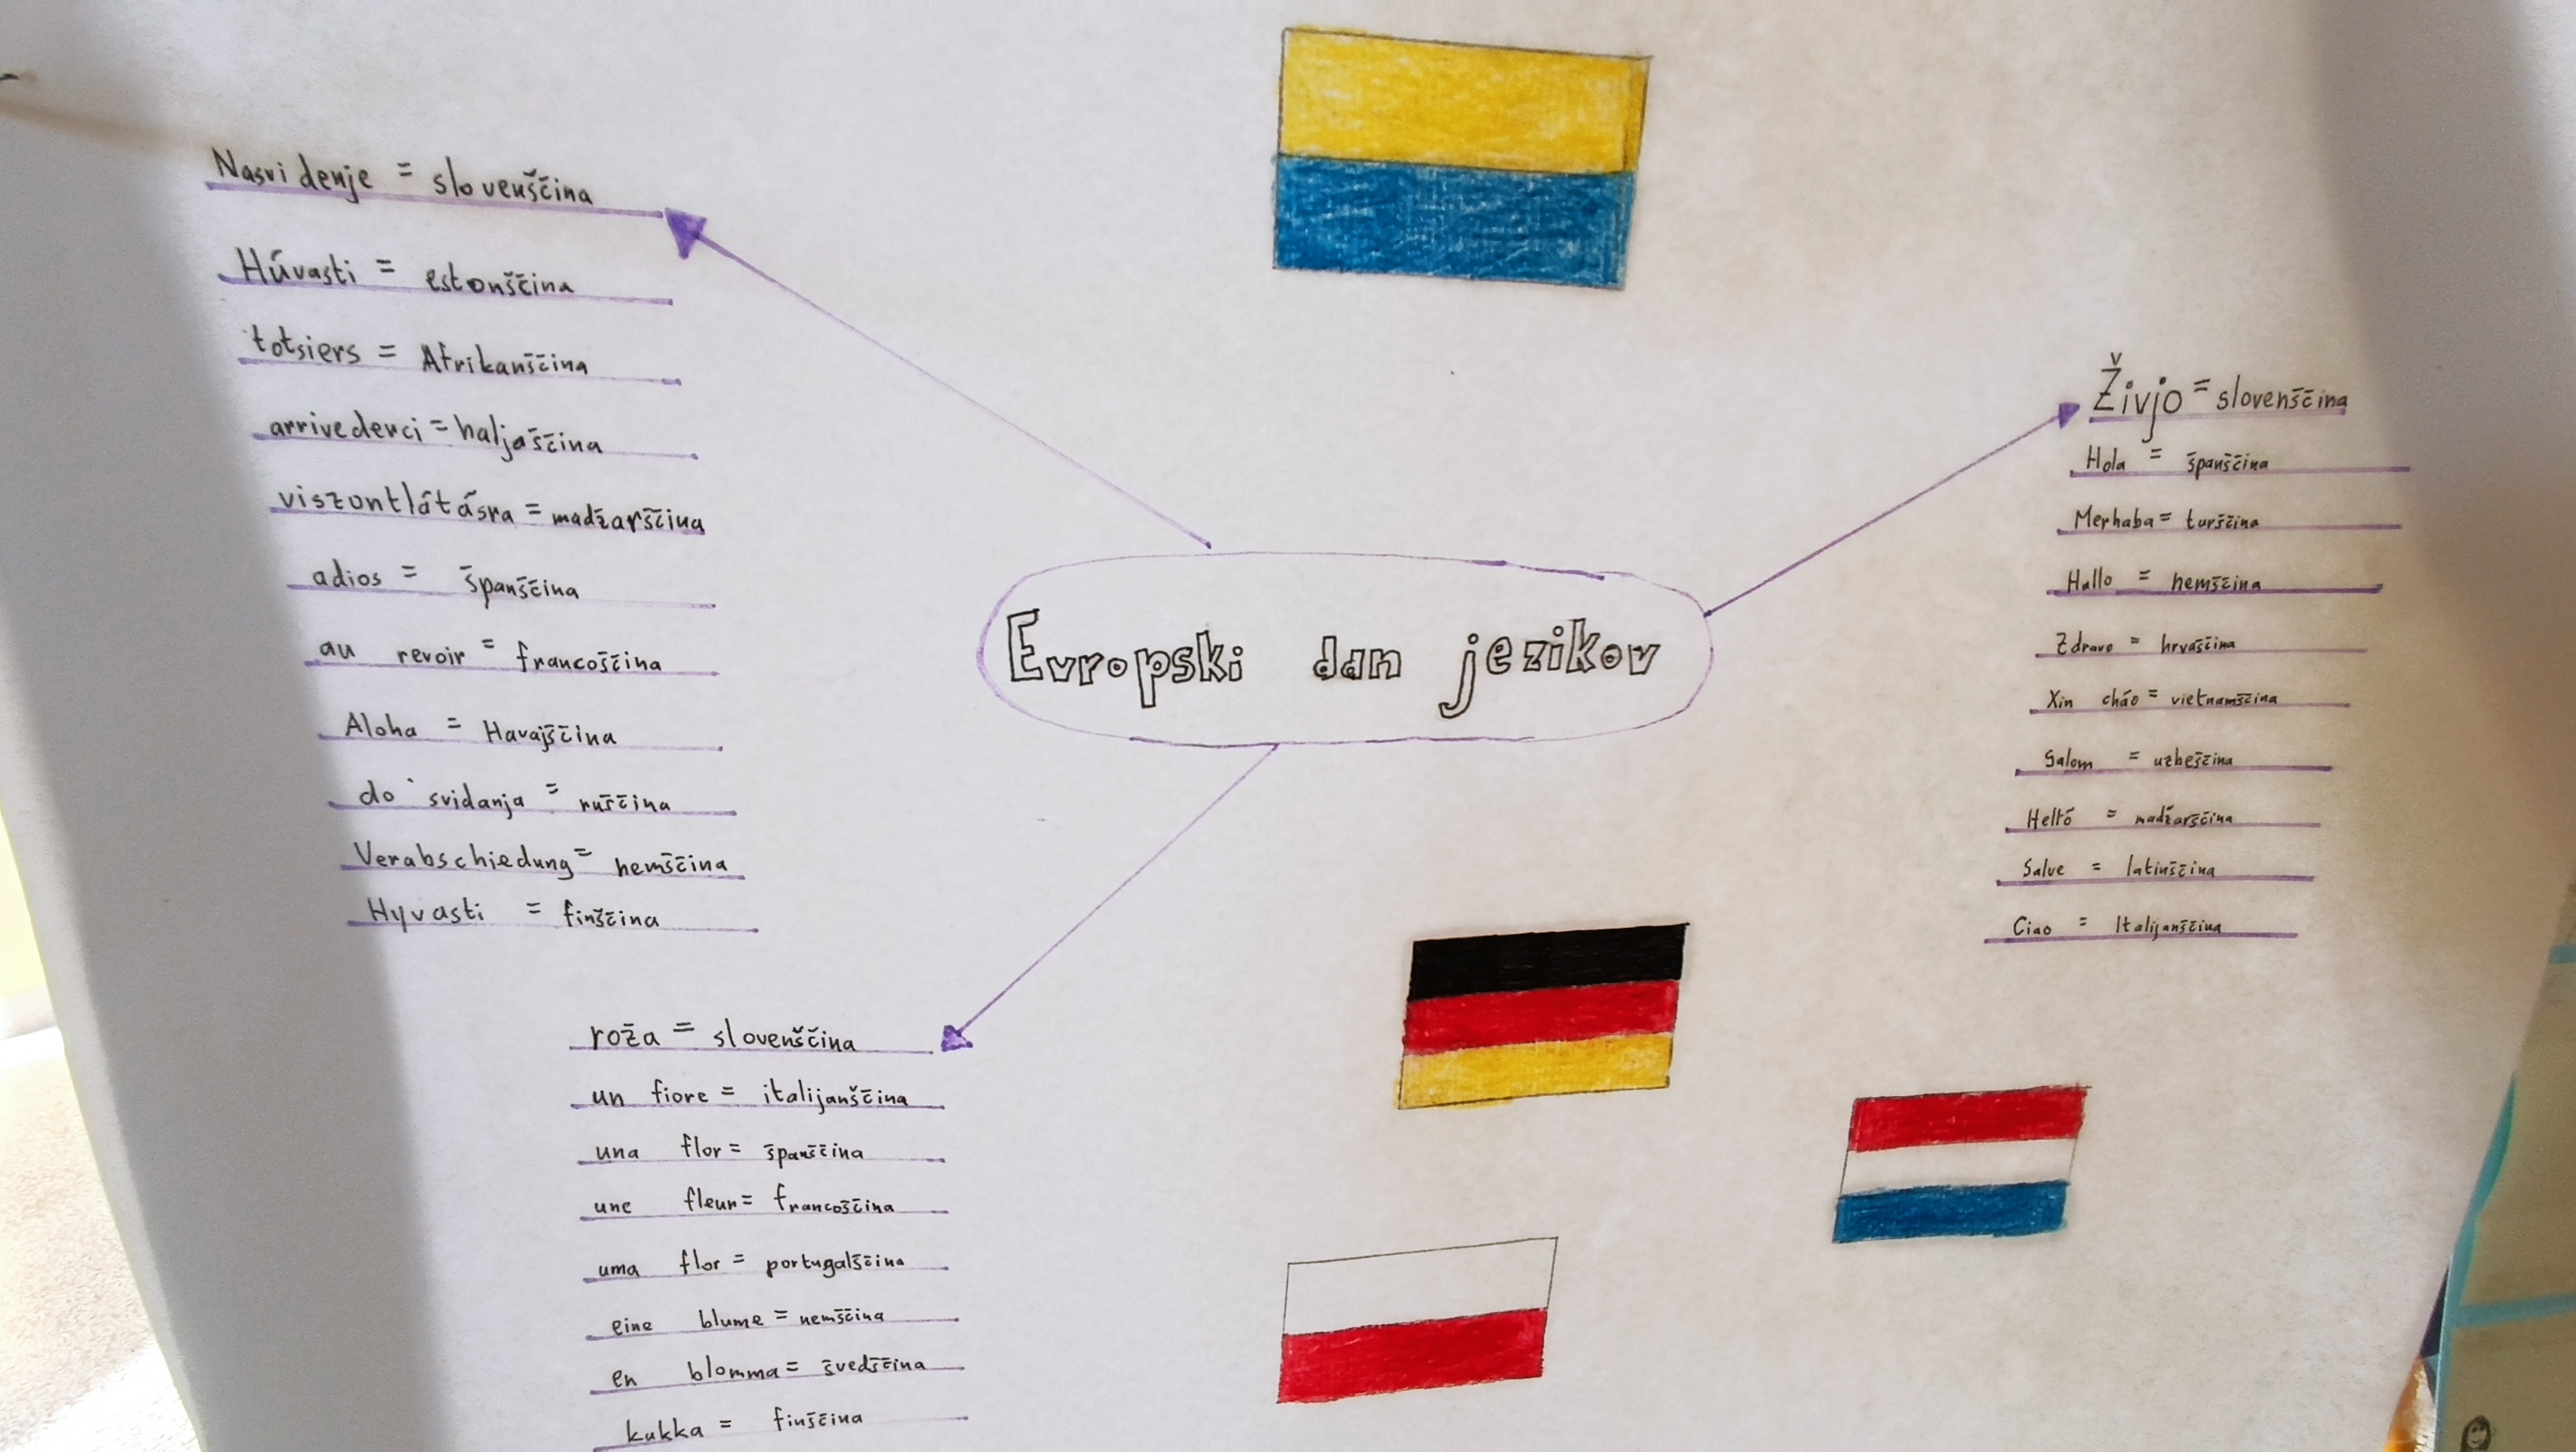 Nasvidenje = slovenščina
Húvasti = estonščina
totsiers = Afrikanščina
arrivederci = haljaščina
viszontlátásra = madžarščina
adios = španščina
au revoir = francoščina
Aloha = Havajščina
do svidanja = ruščina
Verabschiedung = nemščina
Hyvasti = finščina
Evropski dan jezikov
Živjo = slovenščina
Hola = španščina
Merhaba = turščina
Hallo = nemščina
Zdravo = hrvaščina
Xin cháo = vietnamščina
Salom = uzbeščina
Helló = madžarščina
Salve = latinščina
Ciao = Italijanščina
roža = slovenščina
un fiore = italijanščina
una flor = španščina
une fleur = francoščina
uma flor = portugalščina
eine blume = nemščina
en blomma = švedščina
kukka = finščina